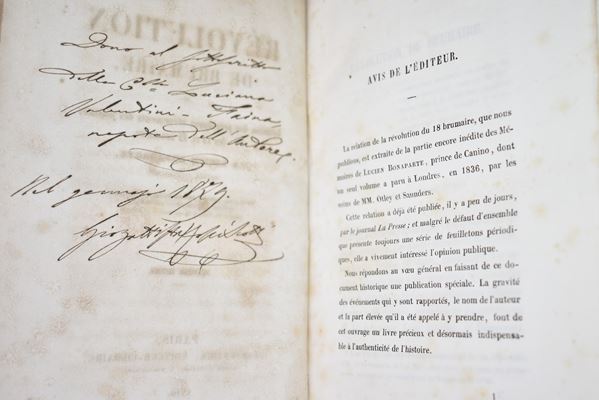 Dono al sottoscritto
della C.ssa Luciana
Valentini - Faina
nepote dell'Autore
Nel gennajo 1879.
AVIS DE L'ÉDITEUR.
La relation de la révolution du 18 brumaire, que nous
publions, est extraite de la partie encore inédite des Mé-
moires de LUCIEN BONAPARTE, prince de Canino, dont
un seul volume a paru à Londres, en 1836, par les
soins de MM. Otley et Saunders.
Cette relation a déjà été publiée, il y a peu de jours,
par le journal La Presse; et malgré le défaut d'ensemble
que présente toujours une série de feuilletons périodi-
ques, elle a vivement intéressé l'opinion publique.
Nous répondons au vœu général en faisant de ce do-
cument historique une publication spéciale. La gravité
des événements qui y sont rapportés, le nom de l'auteur
et la part élevée qu'il a été appelé à y prendre, font de
cet ouvrage un livre précieux et désormais indispensa-
ble à l'authenticité de l'histoire.
1